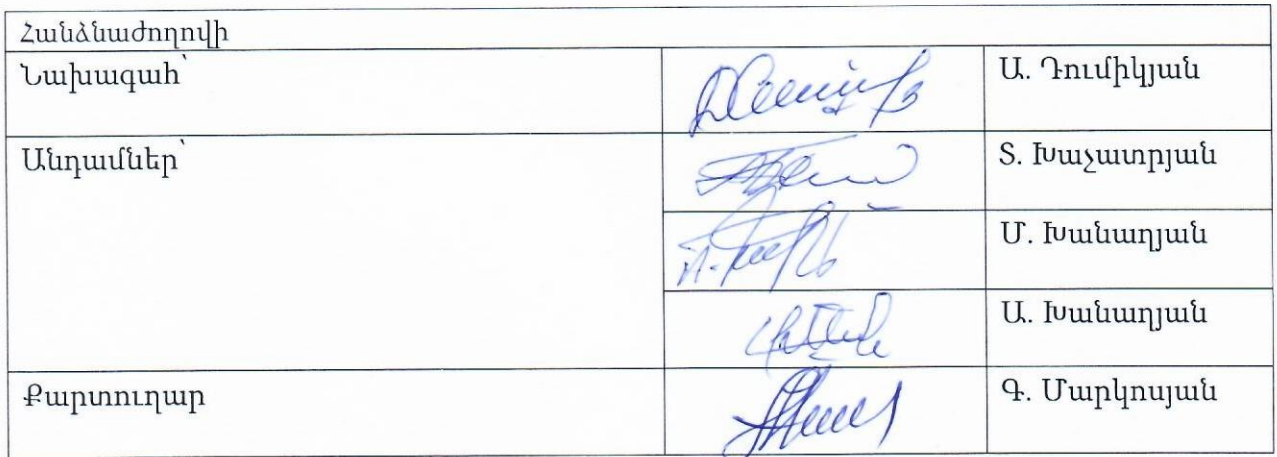 Հանձնաժողովի
Նախագահ՝
Ա. Դումիկյան
Անդամներ՝
Տ. Խաչատրյան
Մ. Խանաղյան
Ա. Խանաղյան
Քարտուղար
Գ. Մարկոսյան